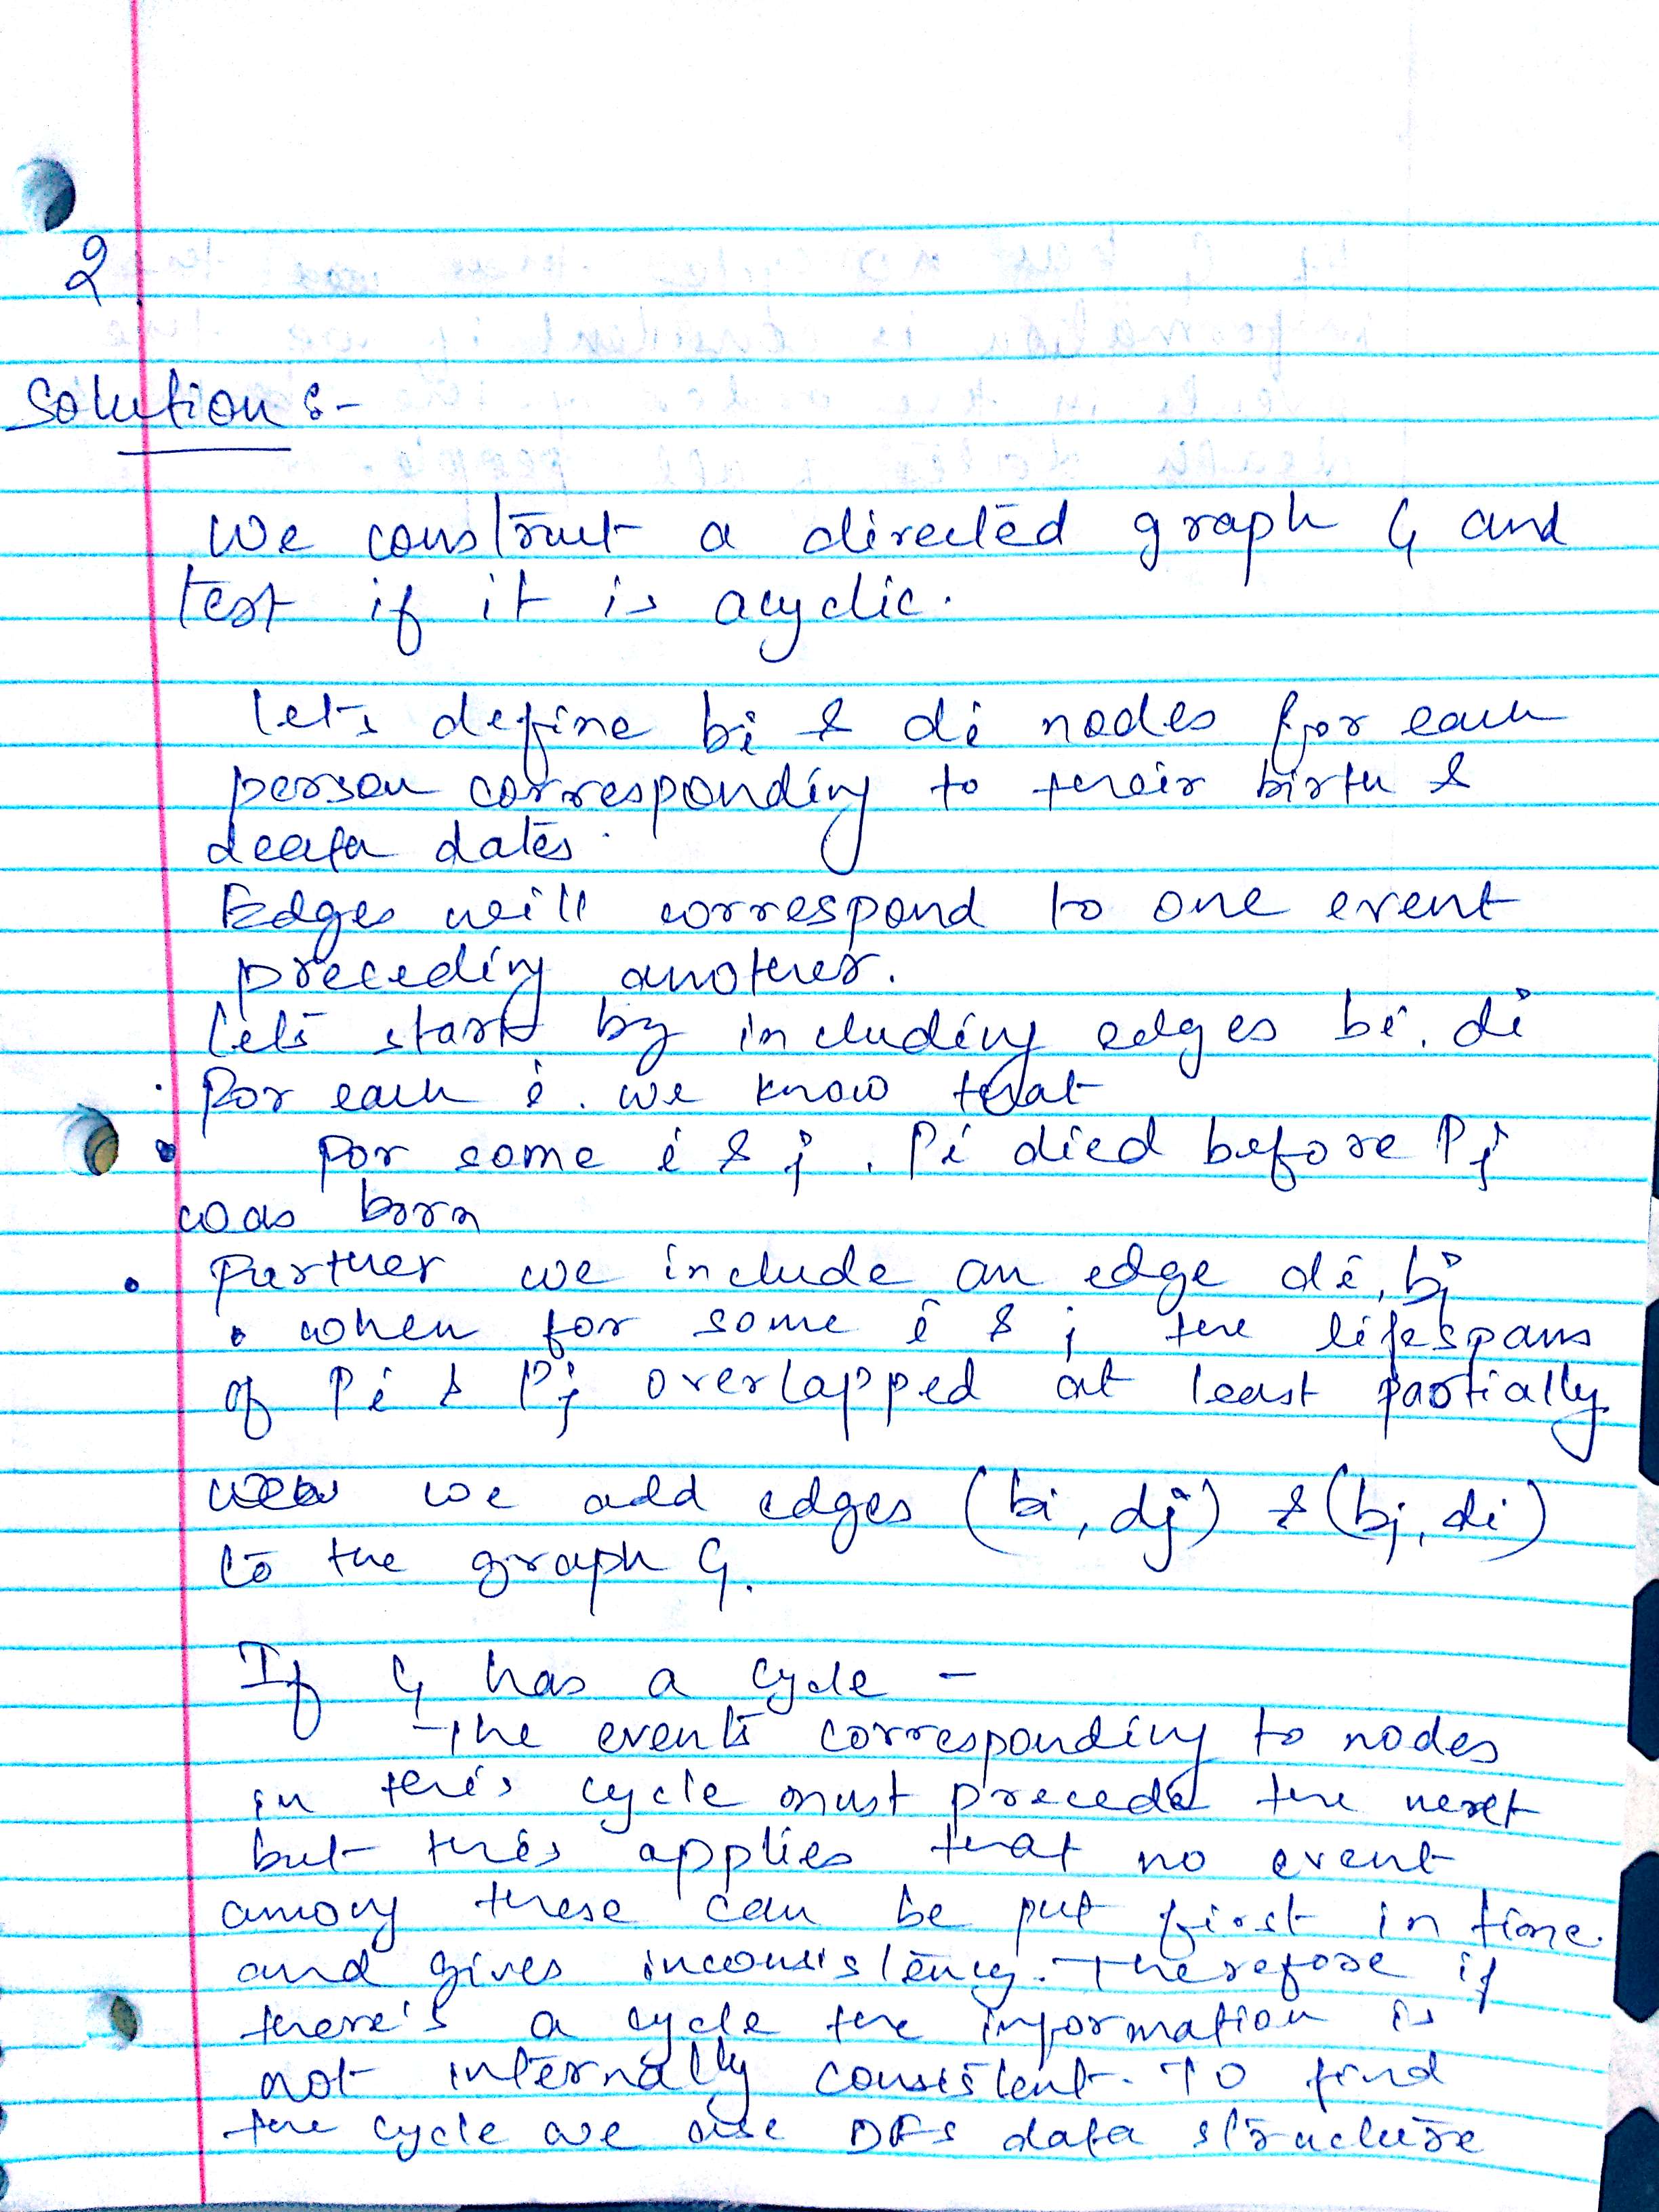 2
Solution :-
We construct a directed graph G and
test if it is acyclic.
Lets define bi & di nodes for each
person corresponding to their birth &
death dates.
Edges will correspond to one event
preceding another.
Lets start by including edges bi, di
for each i. we know that
• for some i & j, Pi died before Pj
was born
• Further we include an edge di, bj
• when for some i & j the lifespans
of Pi & Pj overlapped at least partially
we add edges (bi, dj) & (bj, di)
to the graph G.
If G has a cycle -
The events corresponding to nodes
in this cycle must precede the next
but this applies that no event
among these can be put first in time.
and gives inconsistency. Therefore if
there's a cycle the information is
not internally consistent. To find
the cycle we use DFS data structure